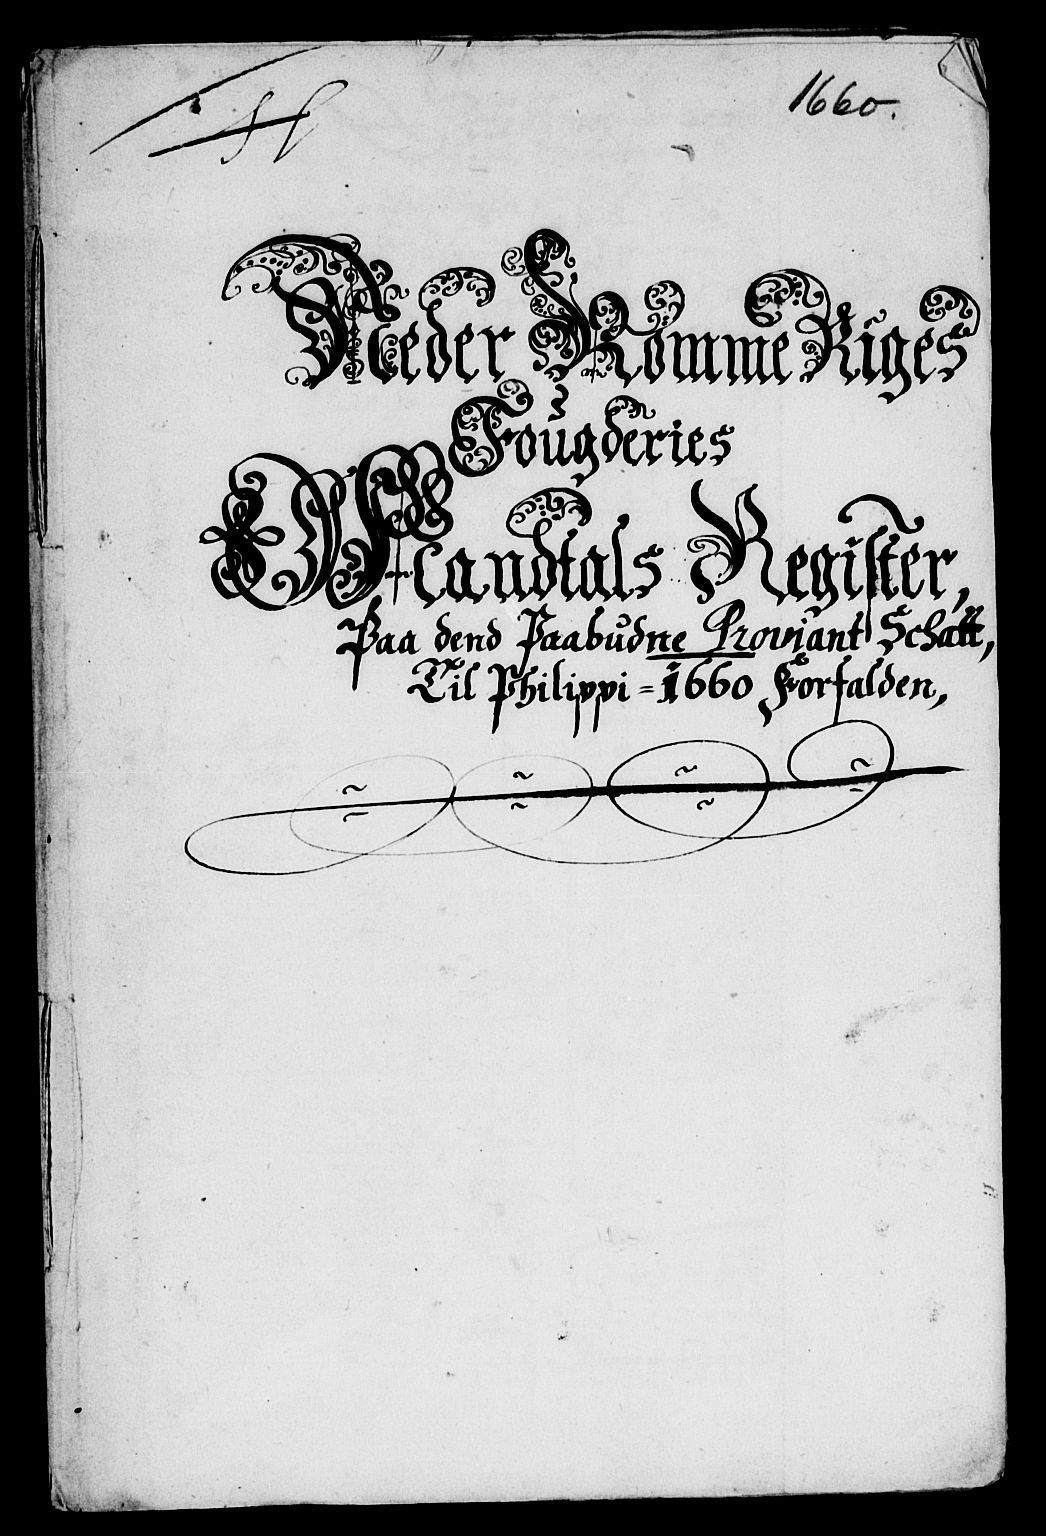 1660.
Neder Romme Riges
Fougderies
Mandtals Register,
Paa dend Paabudne Proviant Schatt,
Til Philippi = 1660 Forfalden,